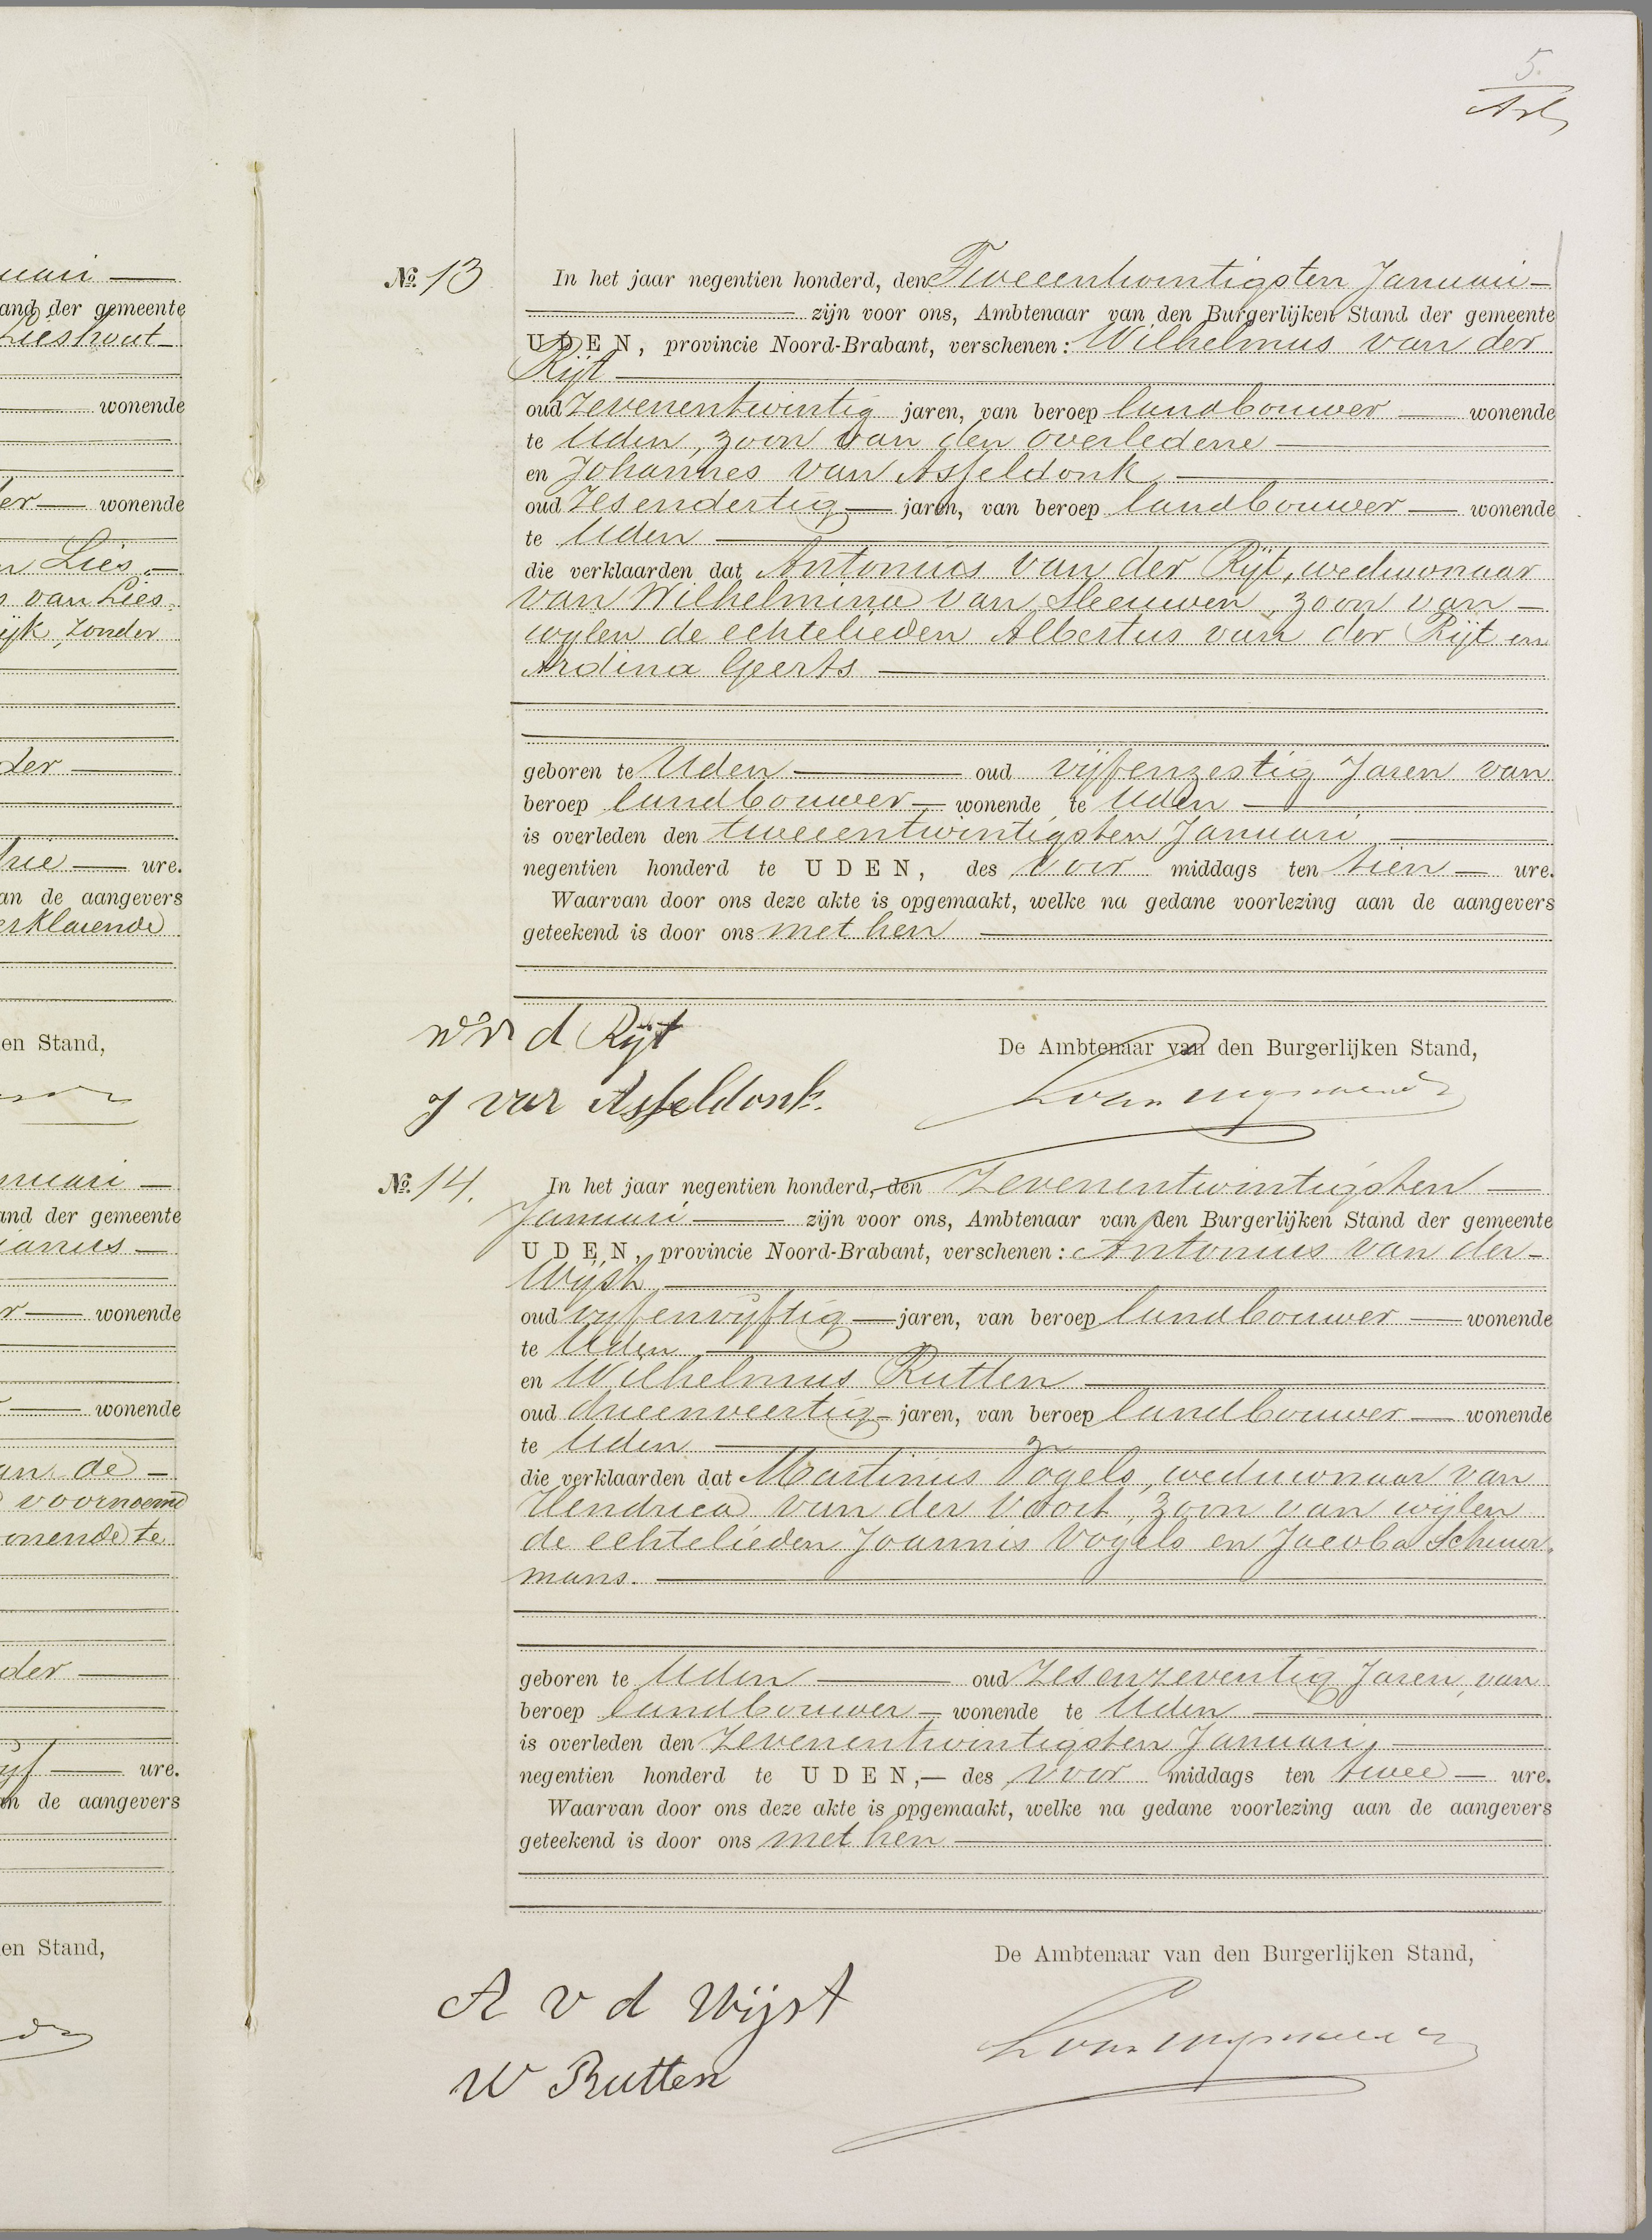 5.
No. 13 In het jaar negentien honderd, den Tweeentwintigsten Januari —
zijn voor ons, Ambtenaar van den Burgerlijken Stand der gemeente
UDEN, provincie Noord-Brabant, verschenen: Wilhelmus van der
Rijt —
oud Zevenentwintig jaren, van beroep landbouwer — wonende
te Uden, zoon van den overledene —
en Johannes van Asseldonk —
oud Zesendertig — jaren, van beroep landbouwer — wonende
te Uden —
die verklaarden dat Antonius van der Rijt, weduwnaar
van Wilhelmina van Sleeuwen, zoon van —
wijlen de echtelieden Albertus van der Rijt en
Ardina Geerts —
geboren te Uden — oud vijfenzestig Jaren van
beroep landbouwer — wonende te Uden —
is overleden den tweeentwintigsten Januari —
negentien honderd te UDEN, des voor middags ten tien — ure.
Waarvan door ons deze akte is opgemaakt, welke na gedane voorlezing aan de aangevers
geteekend is door ons met hen —
W v d Rijt
De Ambtenaar van den Burgerlijken Stand,
J van Asseldonk.
No. 14. In het jaar negentien honderd, den Zevenentwintigsten —
Januari — zijn voor ons, Ambtenaar van den Burgerlijken Stand der gemeente
UDEN, provincie Noord-Brabant, verschenen: Antonius van der —
Wijst —
oud vijfenvijftig — jaren, van beroep landbouwer — wonende
te Uden —
en Wilhelmus Rutten —
oud drieenveertig — jaren, van beroep landbouwer — wonende
te Uden —
die verklaarden dat Martinus Vogels, weduwnaar van
Hendrica van der Voort, zoon van wijlen
de echtelieden Joannis Vogels en Jacoba Schuur-
mans. —
geboren te Uden — oud Zesenzeventig Jaren, van
beroep landbouwer — wonende te Uden —
is overleden den Zevenentwintigsten Januari, —
negentien honderd te UDEN, — des voor middags ten twee — ure.
Waarvan door ons deze akte is opgemaakt, welke na gedane voorlezing aan de aangevers
geteekend is door ons met hen —
De Ambtenaar van den Burgerlijken Stand,
A v d Wijst
W Rutten